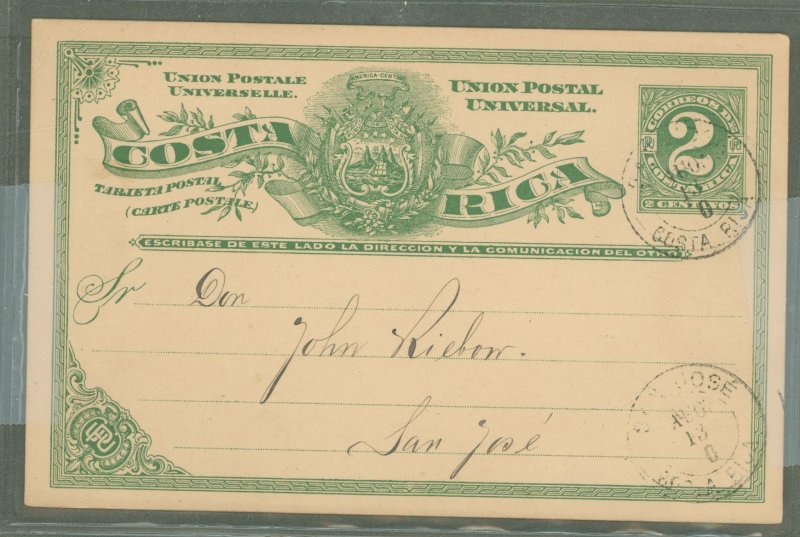 AMERICA CENTRAL
UNION POSTALE
UNIVERSELLE.
UNION POSTAL
UNIVERSAL.
COSTA
RICA
TARJETA POSTAL
(CARTE POSTALE)
CORREOS DE
2
COSTA RICA
2 CENTAVOS
COSTA RICA
ESCRIBASE DE ESTE LADO LA DIRECCION Y LA COMUNICACION DEL OTRO
Sr Don
John Riebow.
San José
SAN JOSÉ
AUG
13
0
COSTA RICA
UPU